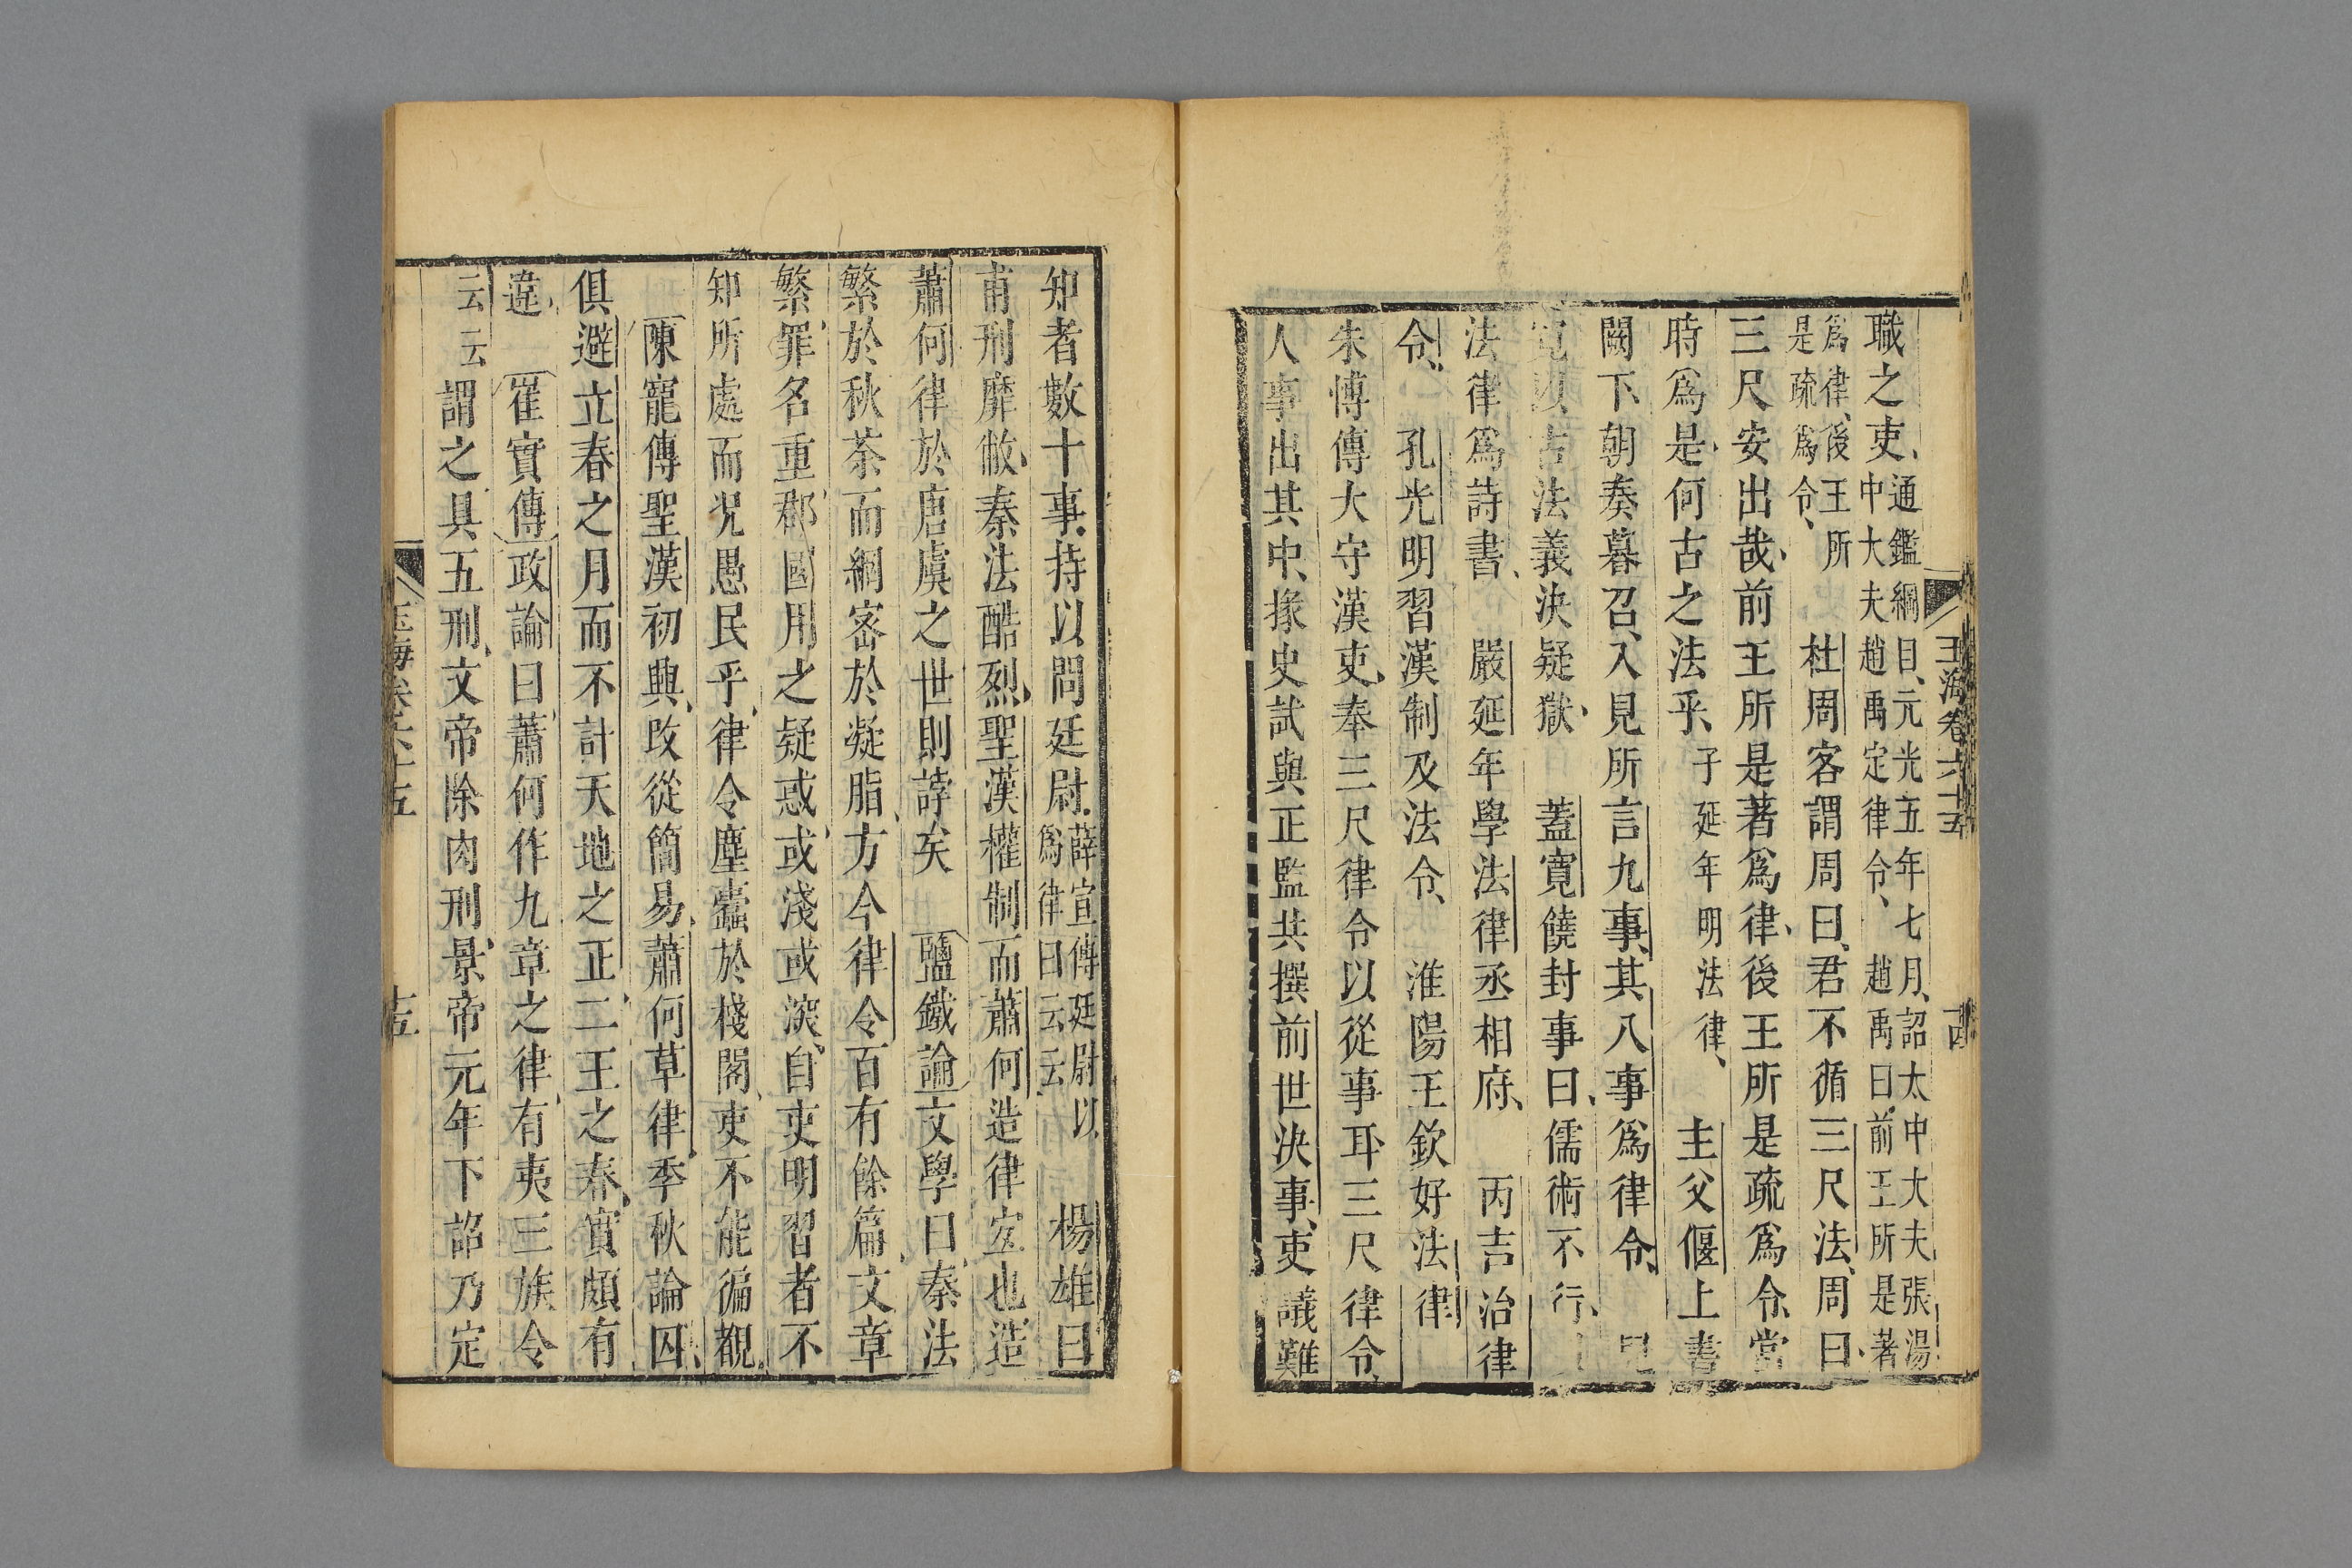 玉海卷六十五
職之吏通鑑綱目元光五年七月詔太中大夫張湯
中大夫趙禹定律令趙禹曰前王所是著
爲律後王所
是疏爲令杜周客謂周曰君不循三尺法周曰
三尺安出哉前王所是著爲律後王所是疏爲令當
時爲是何古之法乎子延年明法律主父偃上書
闕下朝奏暮召入見所言九事其八事爲律令
以古法義決疑獄蓋寬饒封事曰儒術不行
法律爲詩書嚴延年學法律丞相府丙吉治律
令孔光明習漢制及法令淮陽王欽好法律
朱博傳大守漢吏奉三尺律令以從事耳三尺律令
人事出其中掾史試與正監共撰前世決事吏議難
知者數十事持以問廷尉薛宣傳廷尉以
爲律曰云云楊雄曰
甫刑靡敝秦法酷烈聖漢權制而蕭何造律宜也造
蕭何律於唐虞之世則誖矣鹽鐵論文學曰秦法
繁於秋荼而網密於凝脂方今律令百有餘篇文章
繁罪名重郡國用之疑惑或淺或深自吏明習者不
知所處而況愚民乎律令塵蠹於棧閣吏不能徧覩
陳寵傳聖漢初興改從簡易蕭何草律季秋論囚
俱避立春之月而不計天地之正二王之春實頗有
違崔實傳政論曰蕭何作九章之律有夷三族令
云云謂之具五刑文帝除肉刑景帝元年下詔乃定
玉海卷六十五